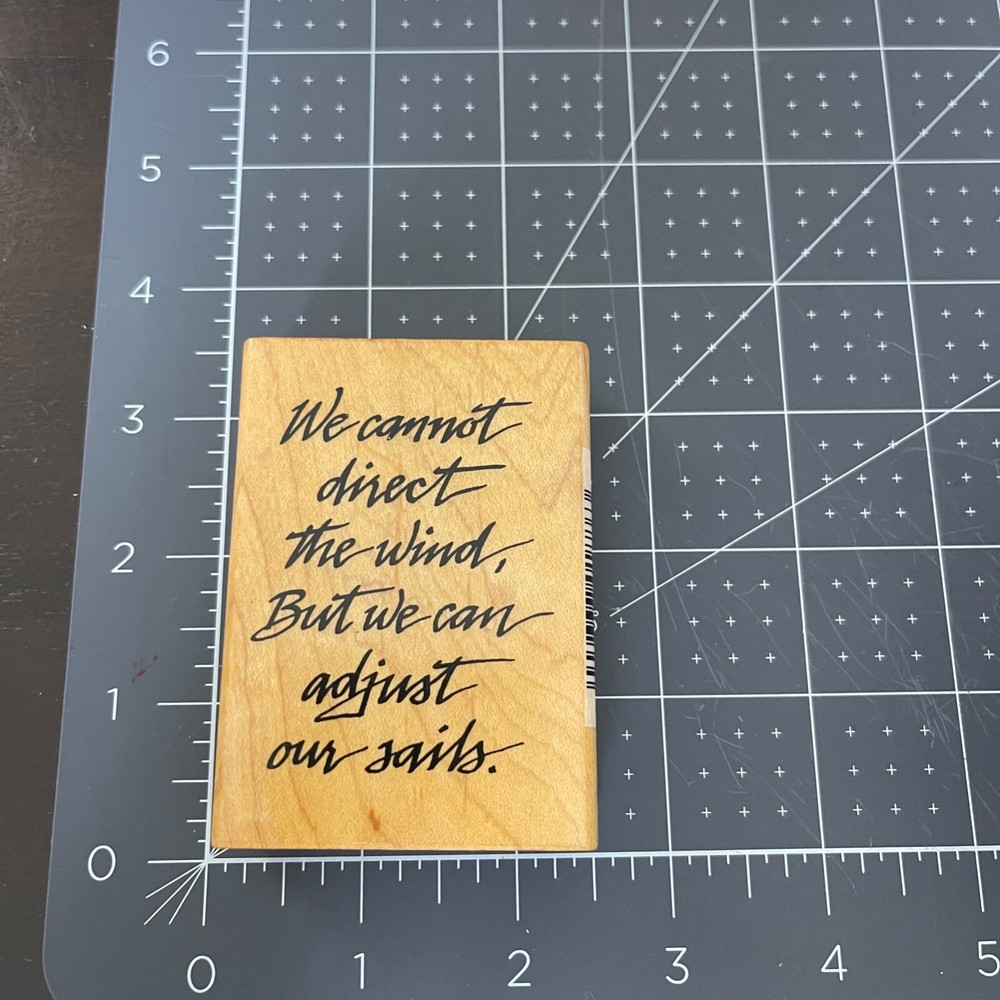 6
5
4
3
2
1
0
We cannot
direct
the wind,
But we can
adjust
our sails.
0 1 2 3 4 5